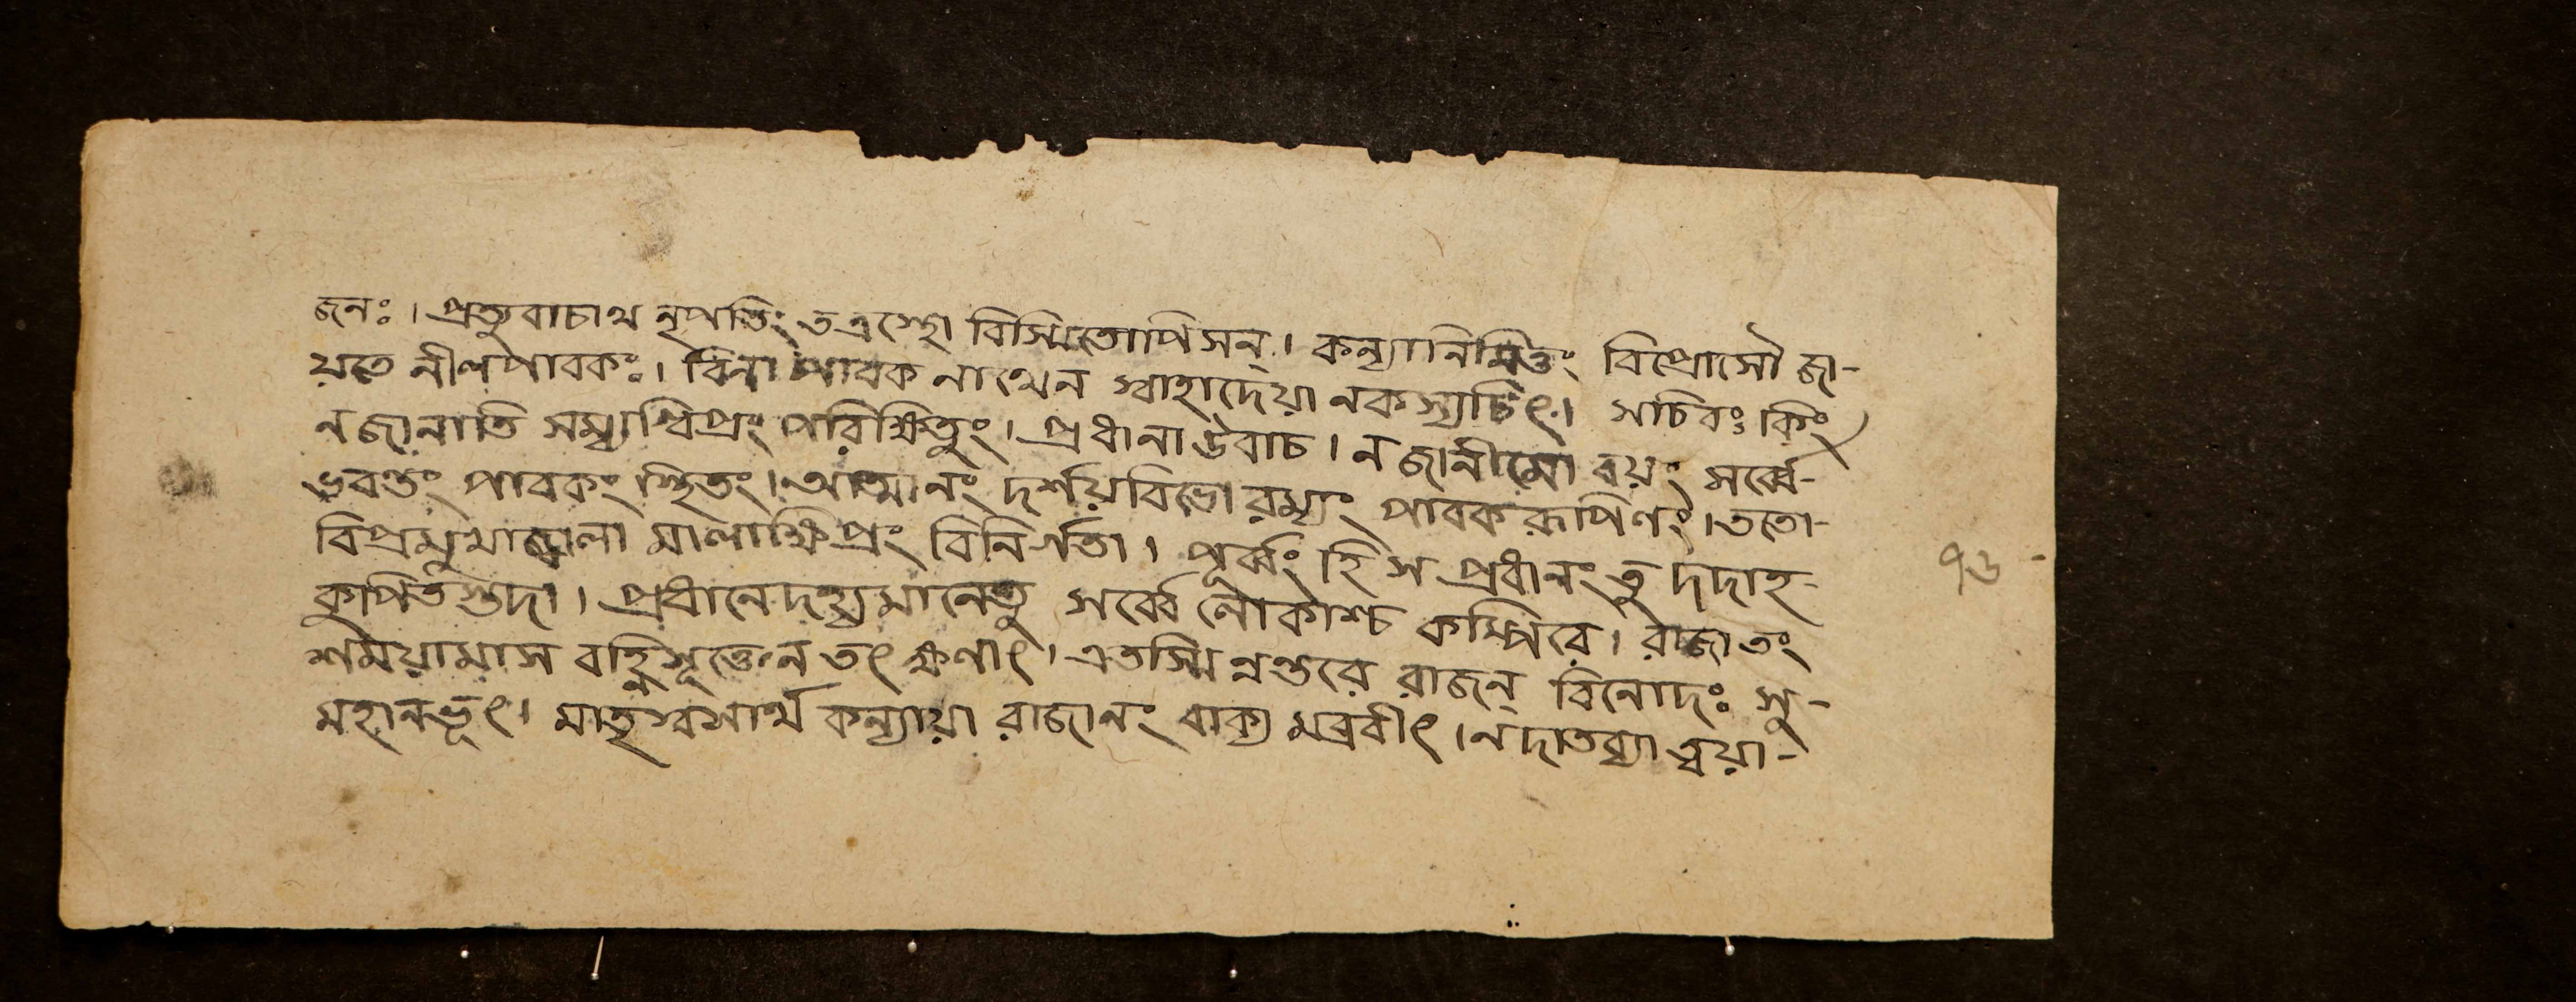 জনঃ। প্রত্যুবাচাথ নৃপতিং তত্রস্থো বিস্মিতোপিসন্। কন্যানিমিত্তং বিপ্রোসৌ জা-
য়তে নীলপাবকঃ। বিনা পাবক নাথেন স্বাহাদেয়া নকস্যচিৎ। সচিবঃ কিং
নজানাতি সম্যগ্বিপ্রং পরিক্ষিতুং। প্রধানাউবাচ। নজানীমো বয়ং সর্ব্বে-
ভবন্তং পাবকং স্থিতং। আত্মানং দর্শয়বিভো রম্যং পাবকরূপিণং। ততো-
বিপ্রমুখাজ্জ্বালা মালাক্ষিপ্রং বিনির্গতা। পূর্ব্বং হি স প্রধানং তু দদাহ-
কুপিতস্তদা। প্রধানেদহ্যমানেতু সর্ব্বে লোকাশ্চ কম্পিরে। রাজা তং
শময়ামাস বহ্নিসূক্তেন তৎ ক্ষণাৎ। এতস্মিন্নন্তরে রাজন্ বিনোদঃ সু-
মহানভূৎ। মাতৃষ্বসাথ কন্যায়া রাজানং বাক্য মব্রবীৎ। নদাতব্যা ত্বয়া-
৭৬